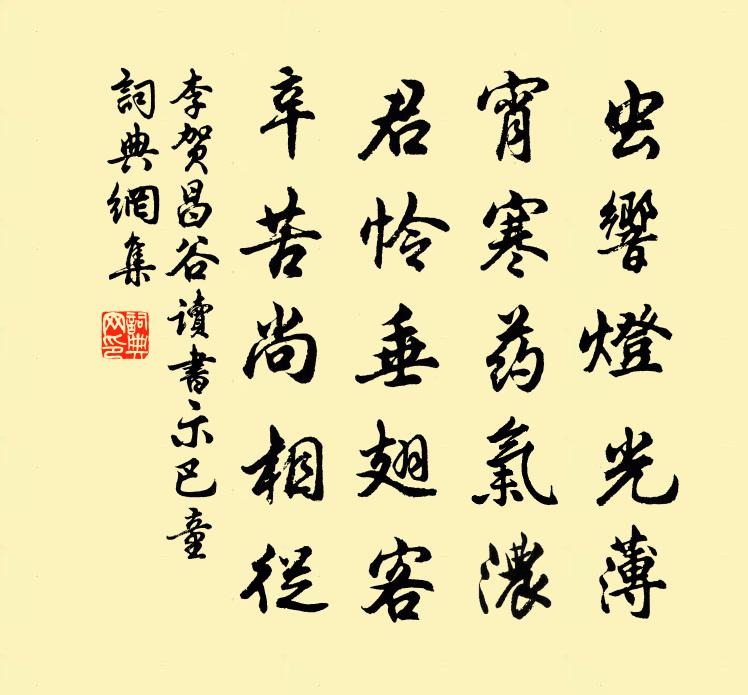 虫響燈光薄
宵寒药氣濃
君怜垂翅客
辛苦尚相從
李贺昌谷讀書示巴童
詞典網集
詞典网印